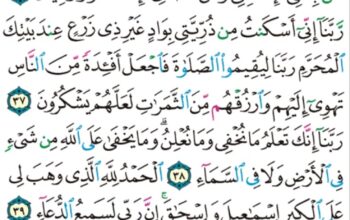 رَّبَّنَآ إِنِّىٓ أَسْكَنتُ مِن ذُرِّيَّتِى بِوَادٍ غَيْرِ ذِى زَرْعٍ عِندَ بَيْتِكَ
ٱلْمُحَرَّمِ رَبَّنَا لِيُقِيمُوا۟ ٱلصَّلَوٰةَ فَٱجْعَلْ أَفْـِٔدَةً مِّنَ ٱلنَّاسِ
تَهْوِىٓ إِلَيْهِمْ وَٱرْزُقْهُم مِّنَ ٱلثَّمَرَٰتِ لَعَلَّهُمْ يَشْكُرُونَ ٣٧
رَبَّنَآ إِنَّكَ تَعْلَمُ مَا نُخْفِى وَمَا نُعْلِنُ ۗ وَمَا يَخْفَىٰ عَلَى ٱللَّهِ مِن شَىْءٍ
فِى ٱلْأَرْضِ وَلَا فِى ٱلسَّمَآءِ ٣٨ ٱلْحَمْدُ لِلَّهِ ٱلَّذِى وَهَبَ لِى
عَلَى ٱلْكِبَرِ إِسْمَٰعِيلَ وَإِسْحَٰقَ ۚ إِنَّ رَبِّى لَسَمِيعُ ٱلدُّعَآءِ ٣٩